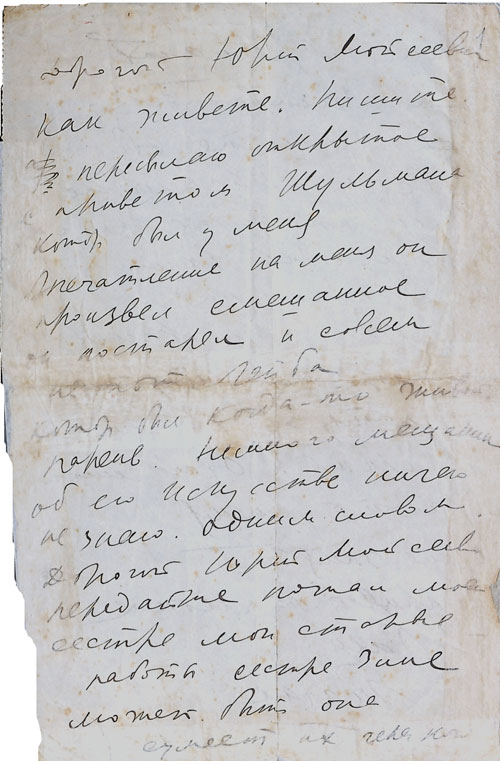 Дорогой Юрий Моисеевич
как живете. Пишите
пересылаю открытое
с приветом Шульмана
котор был у меня
Впечатление на меня он
произвел смешанное
постарел и совсем
не тот
котор был когда-то живой
парень. Немного мещанин
об его искусстве ничего
не знаю. Одним словом.
Дорогой Юрий Моисеев
передайте пожал моей
сестре мои старые
работы сестре Зине
может. быть она
сумеет их